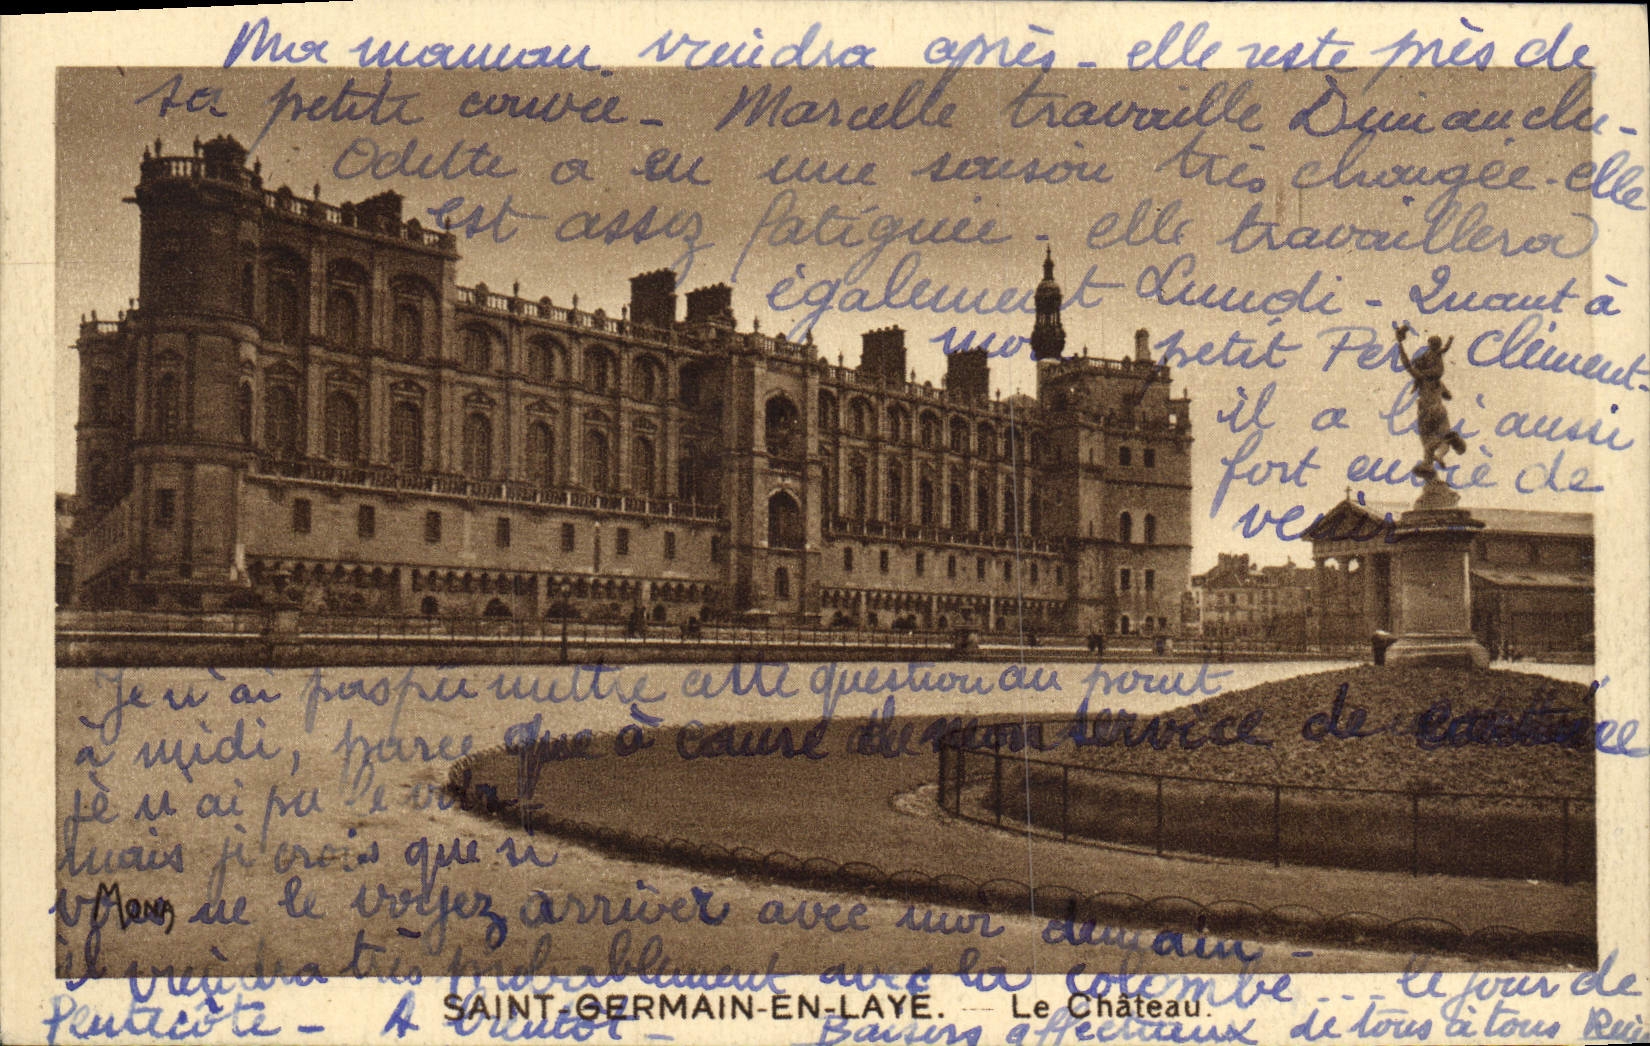 Ma maman viendra après - elle reste près de
sa petite couvée - Marcelle travaille Dimanche -
Odette a eu une saison très chargée - elle
est assez fatiguée - elle travaillera
également Lundi - Quant à
mon petit Père Clément -
il a lui aussi
fort envie de
venir
Je n'ai pas pu mettre cette question au point
à midi, parce que à cause de mon service de
je n'ai pu le voir -
mais je crois que si
vous ne le voyez arriver avec moi demain -
il viendra très probablement avec la colombe ... le jour de
Pentecôte - A bientôt - Baisers affectueux de tous à tous
MONA
SAINT-GERMAIN-EN-LAYE. — Le Château.